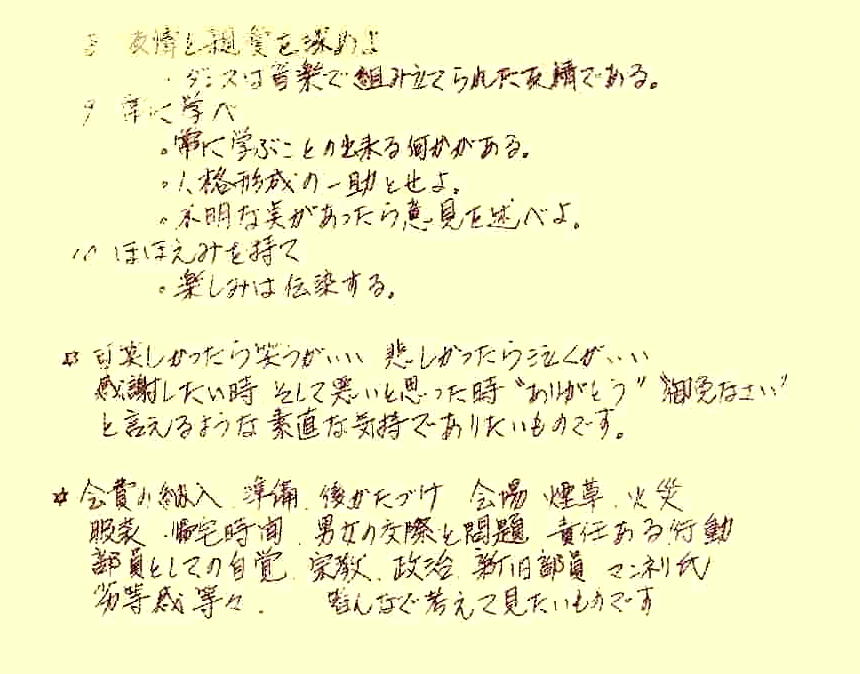 8 友情と親愛を深めよ
・ダンスは音楽で組み立てられた友情である。
9 常に学べ
・常に学ぶことの出来る何かがある。
・人格形成の一助とせよ。
・不明な点があったら意見を述べよ。
10 ほほえみを持て
・楽しみは伝染する。
☆ 可楽しかったら笑うがいい 悲しかったら泣くがいい
感謝したい時 そして悪いと思った時 "ありがとう" "御免なさい"
と言えるような素直な気持でありたいものです。
☆ 会費の納入 準備 後かたづけ 会場 煙草 火災
服装 帰宅時間 男女の交際と問題 責任ある行動
部員としての自覚 宗教 政治 新旧部員 マンネリ氏
劣等感等々. 皆んなで考えて見たいものです